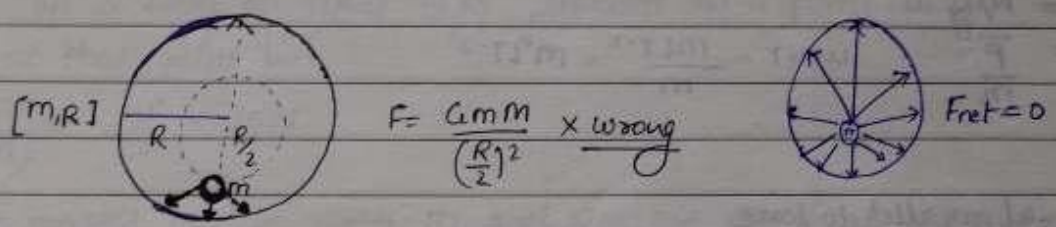 [m,R]
R
R/2
m
F = GmM/(R/2)² × wrong
m
Fnet = 0